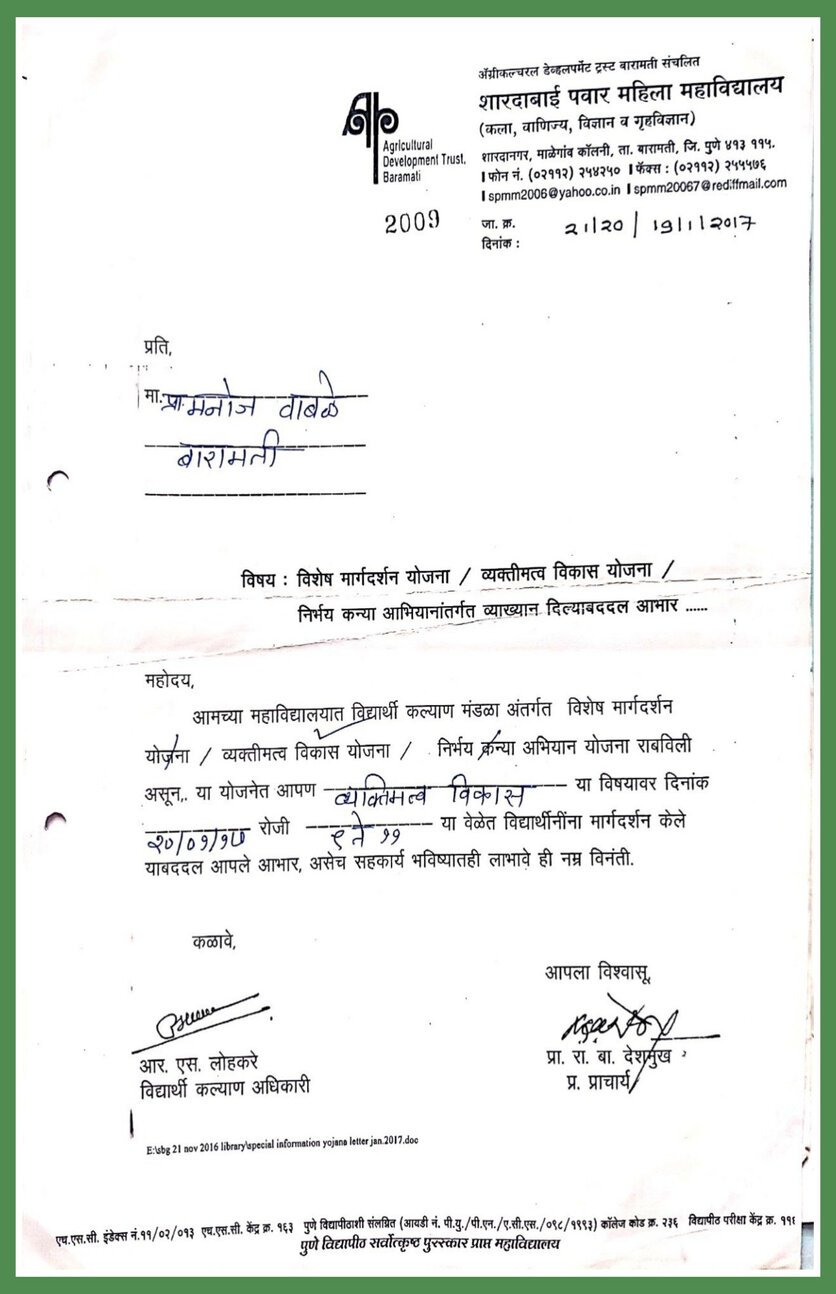 ॲग्रीकल्चरल डेव्हलपमेंट ट्रस्ट बारामती संचलित
शारदाबाई पवार महिला महाविद्यालय
(कला, वाणिज्य, विज्ञान व गृहविज्ञान)
शारदानगर, माळेगांव कॉलनी, ता. बारामती, जि. पुणे ४१३ ११५.
फोन नं. (०२११२) २५४२५० फॅक्स : (०२११२) २५५५७६
spmm2006@yahoo.co.in spmm20067@rediffmail.com
Agricultural
Development Trust,
Baramati
2009
जा. क्र. 21/20 / 19/1/2017
दिनांक :
प्रति,
मा. प्रा. मनोज वाबळे
बारामती
विषय : विशेष मार्गदर्शन योजना / व्यक्तीमत्व विकास योजना /
निर्भय कन्या आभियानांतर्गत व्याख्यान दिल्याबददल आभार ......
महोदय,
आमच्या महाविद्यालयात विद्यार्थी कल्याण मंडळा अंतर्गत विशेष मार्गदर्शन
योजना / व्यक्तीमत्व विकास योजना / निर्भय कन्या अभियान योजना राबविली
असून,. या योजनेत आपण व्यक्तिमत्व विकास या विषयावर दिनांक
२०/०१/१७ रोजी ९ ते ११ या वेळेत विद्यार्थीनींना मार्गदर्शन केले
याबददल आपले आभार, असेच सहकार्य भविष्यातही लाभावे ही नम्र विनंती.
कळावे,
आपला विश्वासू,
आर. एस. लोहकरे
विद्यार्थी कल्याण अधिकारी
प्रा. रा. बा. देशमुख
प्र. प्राचार्य
E:\sbg 21 nov 2016 library\special information yojana letter jan.2017.doc
एच.एस.सी. इंडेक्स नं.११/०२/०१३ एच.एस.सी. केंद्र क्र. १६३ पुणे विद्यापीठाशी संलग्नित (आयडी नं. पी.यु./पी.एन./ए.सी.एस./०९८/१९९३) कॉलेज कोड क्र. २३६ विद्यापीठ परीक्षा केंद्र क्र. ११६
पुणे विद्यापीठ सर्वोत्कृष्ठ पुरस्कार प्राप्त महाविद्यालय